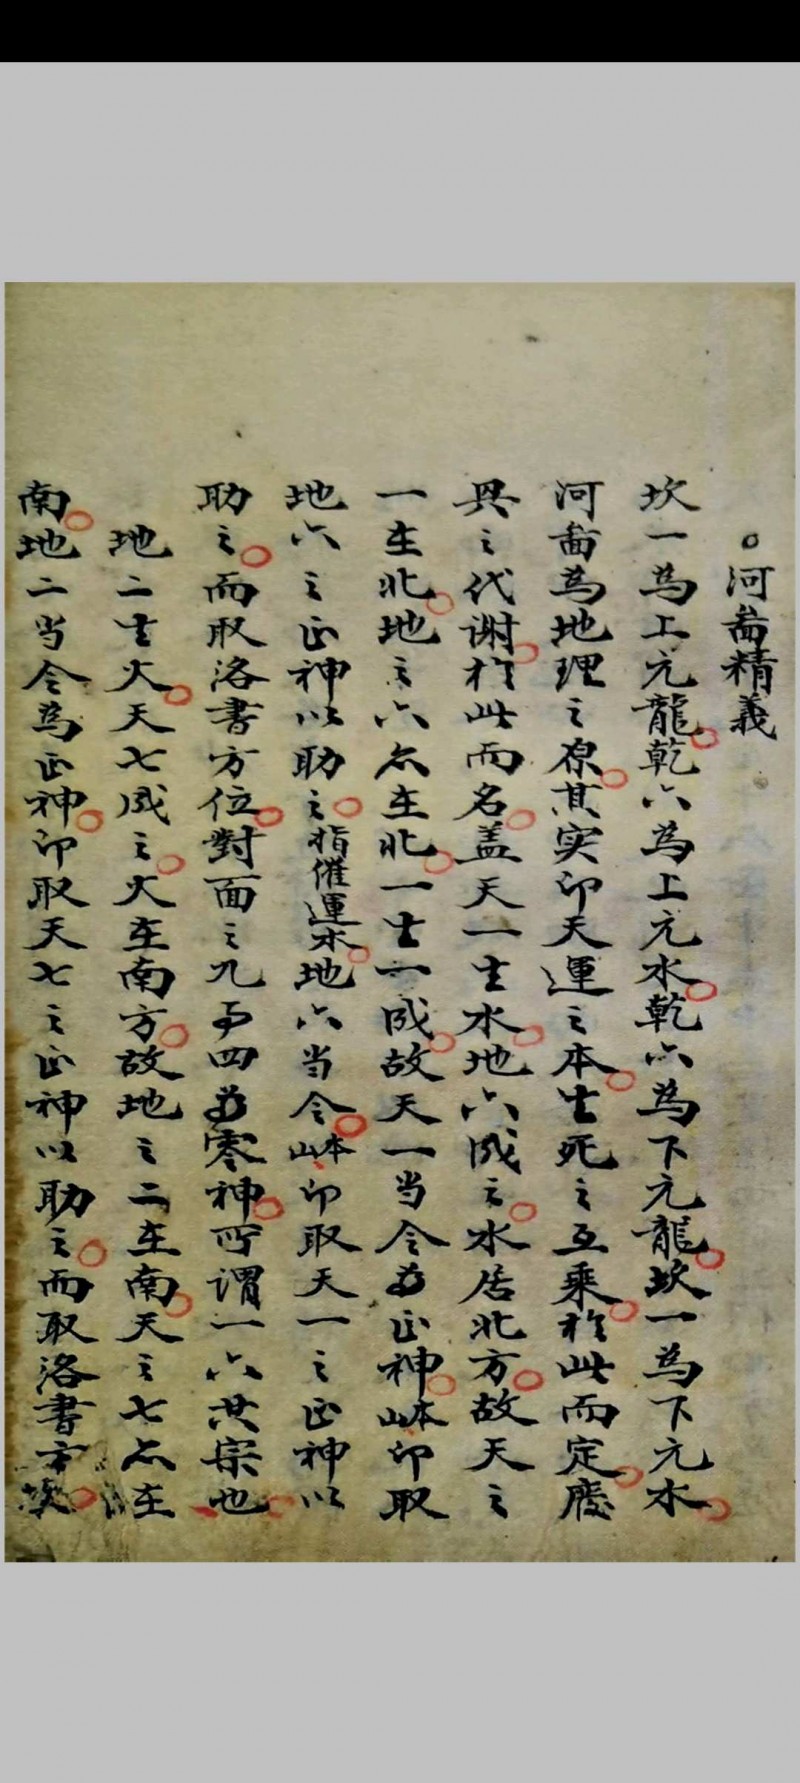 河畵精義
坎一為上元龍乾六為上元水乾六為下元龍坎一為下元水
河畵為地理之原其实卽天運之本生死之互乘於此而定廢
興之代谢於此而名盖天一生水地六成之水居北方故天之
一在北地之六亦在北一生一成故天一当令為正神山本卽取
地六之正神以助之指催運水地六当令山本卽取天一之正神以
助之而取洛書方位對面之九与四為零神所謂一六共宗也
地二生火天七成之火在南方故地之二在南天之七亦在
南地二当令為正神卽取天七之正神以助之而取洛書方